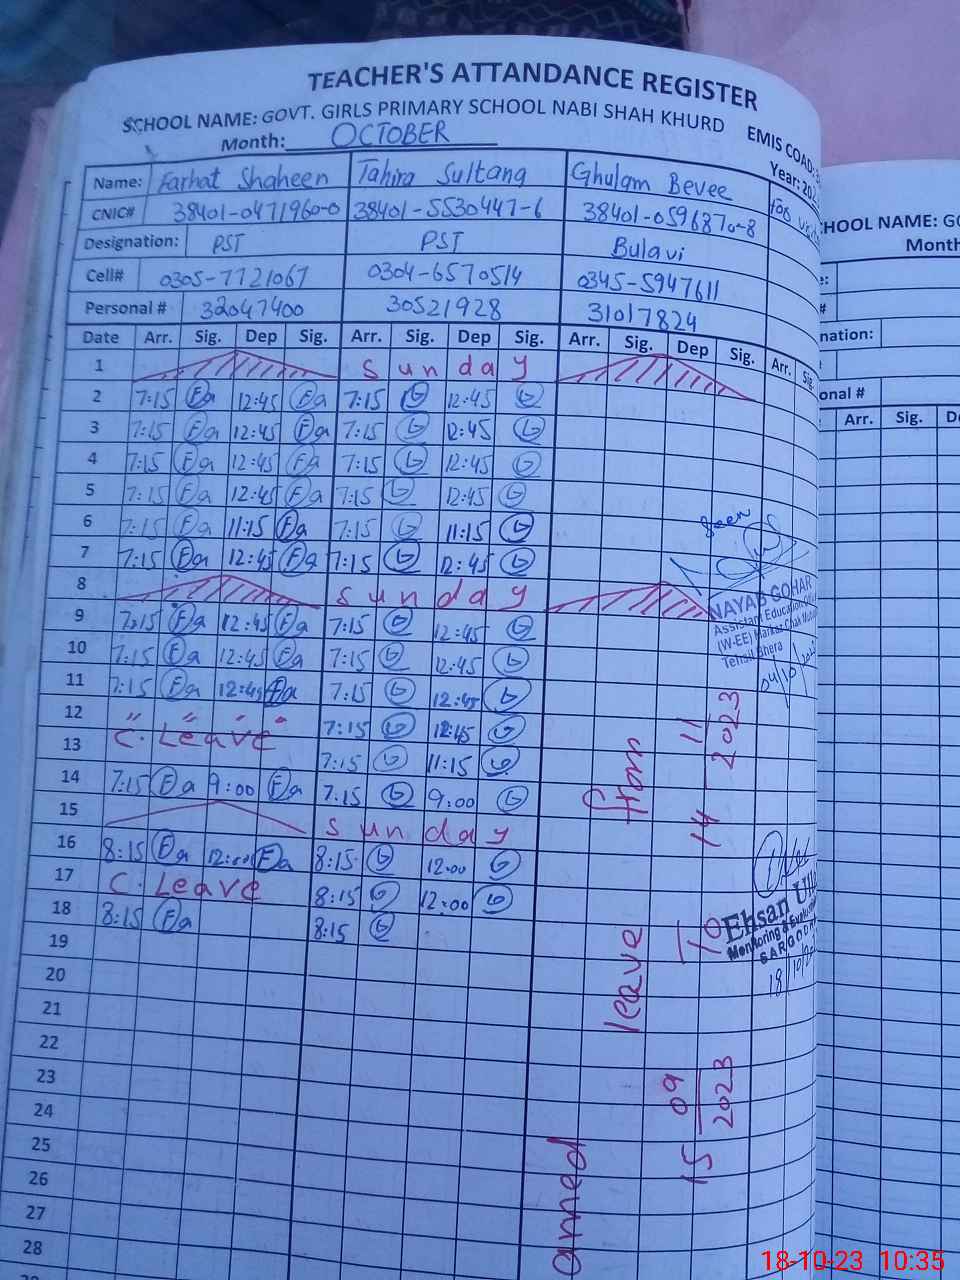 TEACHER'S ATTANDANCE REGISTER
SCHOOL NAME: GOVT. GIRLS PRIMARY SCHOOL NABI SHAH KHURD EMIS COAD:
Month: OCTOBER Year: 202
Name: Farhat Shaheen Tahira Sultana Ghulam Bevee
CNIC# 38401-0471960-0 38401-5530447-6 38401-0596870-8
Designation: PST PST Bulavi
Cell# 0305-7721067 0304-6570514 0345-5947611
Personal # 32047400 30521928 31017824
Date Arr. Sig. Dep Sig. Arr. Sig. Dep Sig. Arr. Sig. Dep Sig. Arr. Sig.
1 Sunday
2 7:15 Fa 12:45 Fa 7:15 12:45
3 7:15 Fa 12:45 Fa 7:15 12:45
4 7:15 Fa 12:45 Fa 7:15 12:45
5 7:15 Fa 12:45 Fa 7:15 12:45
6 7:15 Fa 11:15 Fa 7:15 11:15
7 7:15 Fa 12:45 Fa 7:15 12:45
8 Sunday
9 7:15 Fa 12:45 Fa 7:15 12:45
10 7:15 Fa 12:45 Fa 7:15 12:45
11 7:15 Fa 12:45 Fa 7:15 12:45
12 " " " " 7:15 12:45
13 C. Leave 7:15 11:15
14 7:15 Fa 9:00 Fa 7:15 9:00
15 Sunday
16 8:15 Fa 12:00 Fa 8:15 12:00
17 C. Leave 8:15 12:00
18 8:15 Fa 8:15
19
20
21
22
23
24
25
26
27
28
Seen
NAYAB GOHAR
Assistant Education
(W-EE) Markaz Chak
Tehsil Bhera
04/10/
leave from
15 09 2023 To 14 11 2023
Ehsan
Monitoring &
SARGO
18/10/
CHOOL NAME: GO
Month
nation:
onal #
Arr. Sig. De
18-10-23 10:35